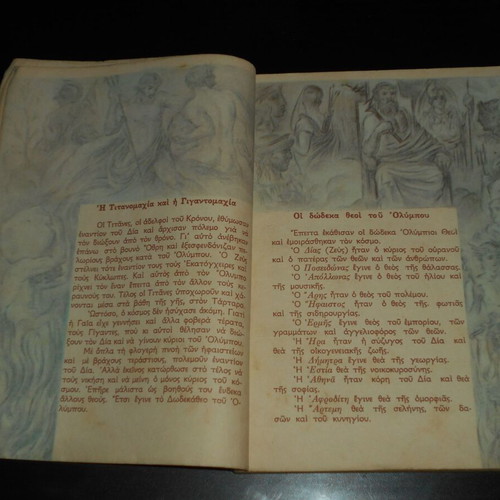 Ἡ Τιτανομαχία καὶ ἡ Γιγαντομαχία
Οἱ Τιτᾶνες, οἱ ἀδελφοὶ τοῦ Κρόνου, ἐθύμωσαν
ἐναντίον τοῦ Δία καὶ ἄρχισαν πόλεμο γιὰ νὰ
τὸν διώξουν ἀπὸ τὸν θρόνο. Γι' αὐτὸ ἀνέβηκαν
ἐπάνω στὸ βουνὸ Ὄθρη καὶ ἐξεσφενδόνιζαν το-
κωρίους βράχους κατὰ τοῦ Ὀλύμπου. Ὁ Ζεὺς
στέλνει τότε ἐναντίον τους τοὺς Ἑκατόγχειρες καὶ
τοὺς Κύκλωπες. Καὶ αὐτὸς ἀπὸ τὸν Ὄλυμπο
ρίχνει τὸν ἕναν ἔπειτα ἀπὸ τὸν ἄλλον τοὺς κε-
ραυνούς του. Τέλος οἱ Τιτᾶνες ὑποχωροῦν καὶ χά-
νονται μέσα στὰ βάθη τῆς γῆς, στὸν Τάρταρο.
Ὡστόσο, ὁ κόσμος δὲν ἡσύχασε ἀκόμη. Γιατὶ
ἡ Γαῖα εἶχε γεννήσει καὶ ἄλλα φοβερὰ τέρατα,
τοὺς Γίγαντες, ποὺ κι αὐτοὶ θέλησαν νὰ διώ-
ξουν τὸν Δία καὶ νὰ γίνουν κύριοι τοῦ Ὀλύμπου.
Μὲ ὅπλα τὴ φλογερὴ πνοὴ τῶν ἡφαιστείων
καὶ μὲ βράχους τεράστιους, πολεμοῦν ἐναντίον
τοῦ Δία. Ἀλλὰ ἐκεῖνος κατώρθωσε στὸ τέλος νὰ
τοὺς νικήσῃ καὶ νὰ μείνῃ ὁ μόνος κύριος τοῦ κό-
σμου. Ἐπῆρε μάλιστα ὡς βοηθούς του ἕνδεκα
ἄλλους θεούς. Ἔτσι ἔγινε τὸ Δωδεκάθεο τοῦ Ὀ-
λύμπου.
Οἱ δώδεκα θεοὶ τοῦ Ὀλύμπου
Ἔπειτα ἐκάθισαν οἱ δώδεκα Ὀλύμπιοι Θεοὶ
καὶ ἐμοιράσθηκαν τὸν κόσμο.
Ὁ Δίας (Ζεὺς) ἦταν ὁ κύριος τοῦ οὐρανοῦ
καὶ ὁ πατέρας τῶν θεῶν καὶ τῶν ἀνθρώπων.
Ὁ Ποσειδώνας ἔγινε ὁ θεὸς τῆς θάλασσας.
Ὁ Ἀπόλλωνας ἔγινε ὁ θεὸς τοῦ ἡλίου καὶ
τῆς μουσικῆς.
Ὁ Ἄρης ἦταν ὁ θεὸς τοῦ πολέμου.
Ὁ Ἥφαιστος ἦταν ὁ θεὸς τῆς φωτιᾶς
καὶ τῆς σιδηρουργίας.
Ὁ Ἑρμῆς ἔγινε θεὸς τοῦ ἐμπορίου, τῶν
γραμμάτων καὶ ἀγγελιοφόρος τῶν θεῶν.
Ἡ Ἥρα ἦταν ἡ σύζυγος τοῦ Δία καὶ
θεὰ τῆς οἰκογενειακῆς ζωῆς.
Ἡ Δήμητρα ἔγινε θεὰ τῆς γεωργίας.
Ἡ Ἑστία θεὰ τῆς νοικοκυροσύνης.
Ἡ Ἀθηνᾶ ἦταν κόρη τοῦ Δία καὶ θεὰ
τῆς σοφίας.
Ἡ Ἀφροδίτη ἔγινε θεὰ τῆς ὀμορφιᾶς.
Ἡ Ἄρτεμη θεὰ τῆς σελήνης, τῶν δα-
σῶν καὶ τοῦ κυνηγίου.